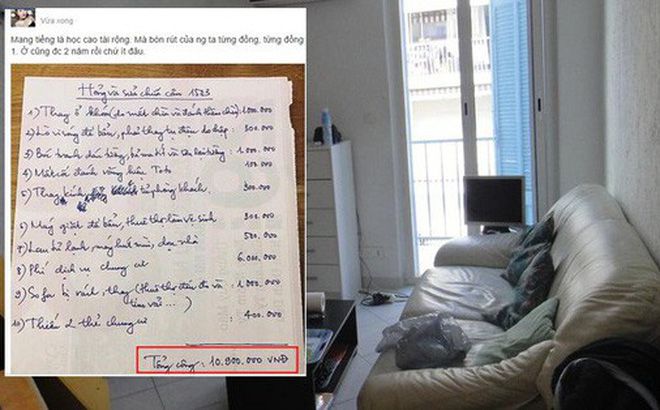 Vừa xong
Mang tiếng là học cao tài rộng. Mà bòn rút của ng ta từng đồng, từng đồng
1. Ở cũng đc 2 năm rồi chứ ít đâu.
Hỏng và sửa chữa căn 1523
1) Thay ổ khóa (do mất chìa và đánh thêm chìa): 1.000.000
2) Lò vi sóng đã bẩn, phải thay tụ điện do hấp : 500.000
3) Bức tranh dán tường, : 1.000.000
4) Mất cái danh vòng hiệu Toto 150.000
5) Thay kính tủ phòng khách. 300.000
6) Máy giặt đã bẩn, thuê thợ làm vệ sinh 300.000
7) Lau tủ lạnh, máy hút mùi, dọn nhà 500.000
8) Phí dịch vụ chung cư 6.000.000
9) Sofa bị rách, thay (thuê thợ đến đo và : 1.000.000
tìm vải ... )
10) Thiếu 2 thẻ chung cư 400.000
Tổng cộng : 10.900.000 VNĐ